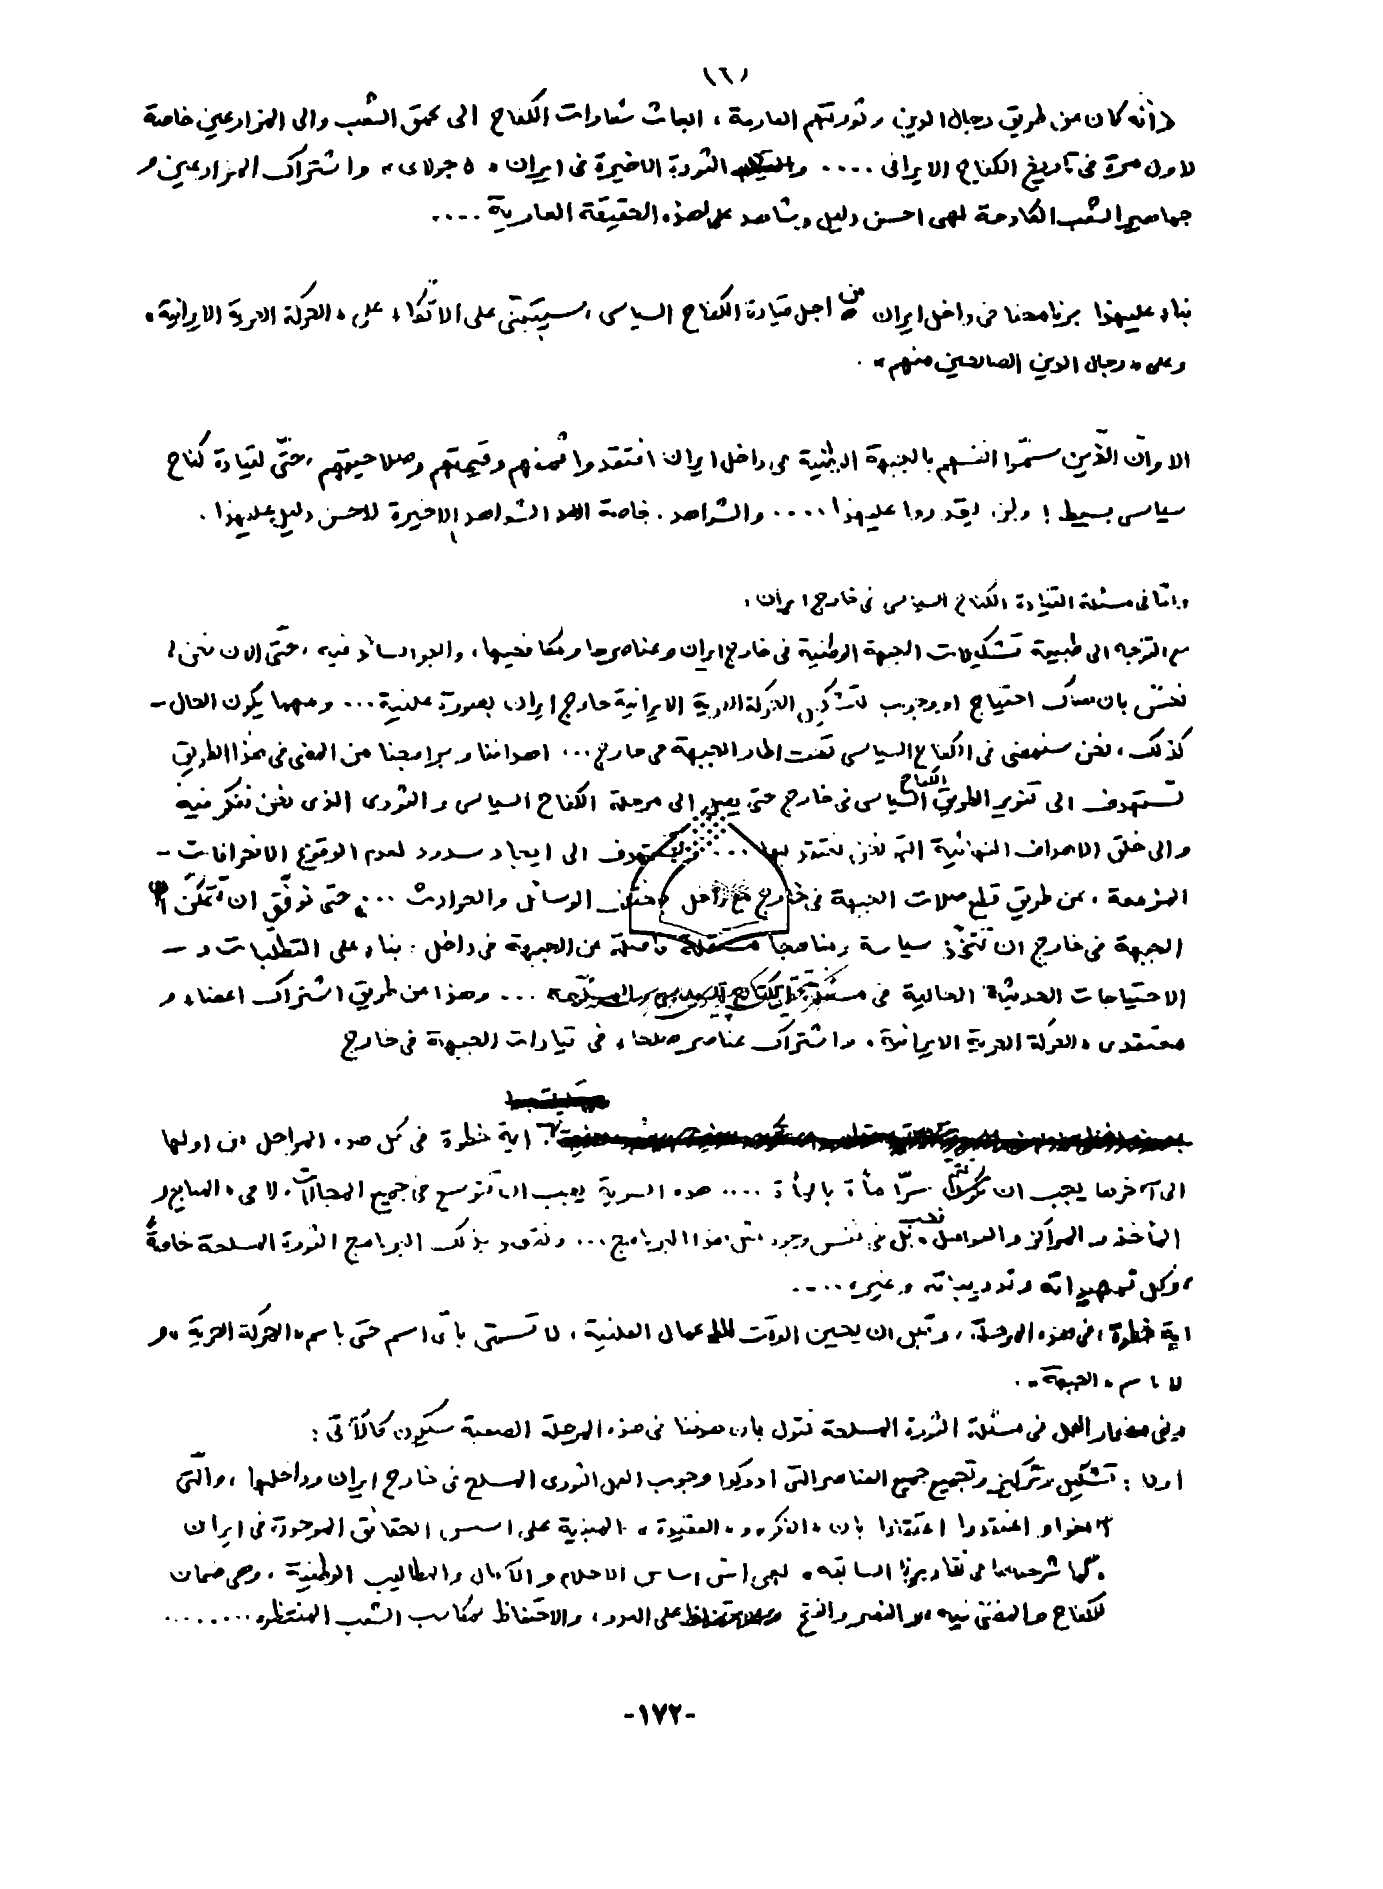 (١٦)
وانه كان عن طريق رجال الدين وثورتهم العارمة، انبعاث شعارات الكفاح الى عمق الشعب والى المزارعين خاصة
لاول مرة فى تاريخ الكفاح الايرانى .... و الثورة الاخيرة فى ايران « ٥ جولاى » واشتراك المزارعين و
جماهير الشعب الكادحة لهى احسن دليل وشاهد على هذه الحقيقة العارية ....
بناء عليهذا برنامجنا فى داخل ايران من اجل قيادة الكفاح السياسى، سيبتنى على الاتكاء على « الحركة الحرية الايرانية »
وعلى « رجال الدين الصالحين منهم » .
الا وان الذين سموا انفسهم بالجبهة الوطنية فى داخل ايران افتقدوا ثمنهم وقيمتهم وصلاحيتهم، حتى لقيادة كفاح
سياسى بسيط ! ولن يقدروا عليهذا .... والشواهد . خاصة الشواهد الاخيرة لاحسن دليل عليهذا .
واما فى مسئلة القيادة الكفاح السياسى فى خارج ايران ،
مع التوجه الى طبيعة تشكيلات الجبهة الوطنية فى خارج ايران وعناصرها ومكافحيها، والجو السائد فيه، حتى الان نحن لا
نحس بان هناك احتياج او وجوب لتشكيل الحركة الحرية الايرانية خارج ايران بصورة علنية ... ومهما يكون الحال -
كذلك، نحن سنمضى فى الكفاح السياسى تحت اطار الجبهة فى خارج ... اهدافنا وبرامجنا من المضى فى هذا الطريق
تستهدف الى تنوير الطريق الكفاح السياسى فى خارج حتى يصل الى مرحلة الكفاح السياسى والثورى الذى نحن نفكر فيه
والى خلق الاهداف النهائية التى نحن نعتقد بها ... وتستهدف الى ايجاد سدود لعدم الوقوع الانحرافات -
المزعمة، عن طريق قطع صلات الجبهة فى خارج مع داخل بمختلف الوسائل والحوادث ... حتى نوفق ان تمكن
الجبهة فى خارج ان تتخذ سياسة ومناهجا مستقلة كاملة عن الجبهة فى داخل . بناء على التطلبات و -
الاحتياجات الحديثة الحالية فى مسئلة ... وهذا عن طريق اشتراك اعضاء و
معتقدى « الحركة الحرية الايرانية » واشتراك عناصر صلحاء فى قيادات الجبهة فى خارج
. اية خطوة فى كل هذه المراحل من اولها
الى آخرها يجب ان تكون سرّا مأة بالمأة .... هذه السرية يجب ان تتوسع فى جميع المجالات، لا فى « المنابع و
المأخذ والمراكز والعوامل » فحسب بل فى نفس وجود مثل هذا البرنامج ... ونقصد بذلك البرنامج الثورة المسلحة خاصةً
، وكل تمهيداته وتدريباته وغيره ....
اية خطوة، فى هذه المرحلة، وقبل ان يحين الوقت للاعمال العلنية، لا تسمى باى اسم حتى باسم « الحركة الحرية » و
لا باسم « الجبهة » .
وفى مضمار العمل فى مسئلة الثورة المسلحة نقول بان هدفنا فى هذه المرحلة الصعبة سيكون كالآتى :
اولا : تشكيل وتركيز وتجميع جميع العناصر التى ادركوا وجوب العمل الثورى المسلح فى خارج ايران وداخلها، والتى
آمنوا و اعتقدوا اعتقادا بان « الفكره » و « العقيدة » المبنية على اسس الحقائق الموجودة فى ايران
« كما شرحناها فى تقاريرنا السابقه » لهى اس اساس الاحلام والآمال والمطاليب الوطنية، وهى ضمان
للكفاح والمضى فيه « والنصر والفتح على العدو، والاحتفاظ بمكاسب الشعب المنتظره ........
-١٧٢-